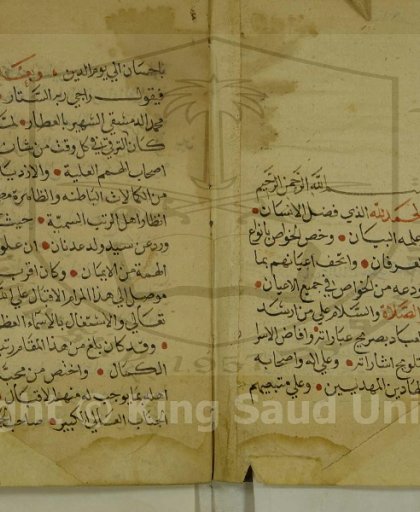 بسم الله الرحمن الرحيم
الحمد لله الذي فضل الانسان
وعلمه البيان وخص الخواص بانواع
العرفان واتحف اعيانهم بما
اودعه من الخواص في جميع الاعيان
والصلاة والسلام على من ارشد
العباد بصريح عباراته وافاض الاسرا
بتلويح اشاراته وعلى اله واصحابه
الهادين المهديين وعلى متبعيهم
باحسان الى يوم الدين وبعد
فيقول راجي ربه الستار
محمد الدمشقي الشهير بالعطار لما
كان الترقي في كل وقت من شان
اصحاب الهمم العلية والازدياد
من الكمالات الباطنة والظاهرة
انظار اهل الرتب السمية حيث
ورد عن سيد ولد عدنان ان علو
الهمة من الايمان وكان اقرب
موصل الى هذا المرام الاقبال على
تعالى والاشتغال بالاسماء العظام
وقد كان بلغ من هذا المقام رتبة
الكمال واختص من
اجلها بما يوجب له مزيد الاقبال
الجناب العالي الكبير صاحب
King Saud Uni
1957